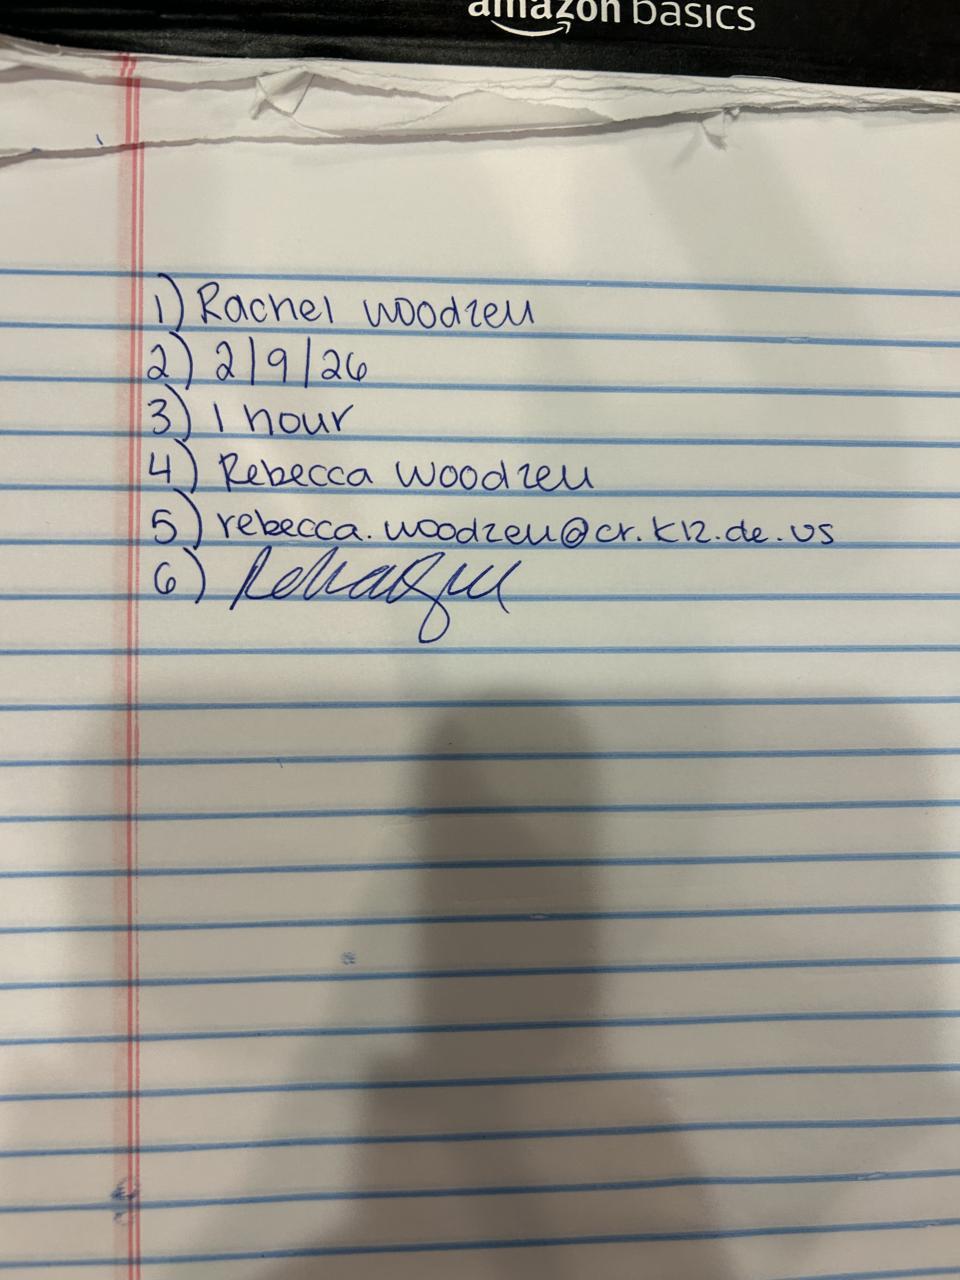 amazon basics
1) Rachel Woodzell
2) 2/9/26
3) 1 hour
4) Rebecca Woodzell
5) rebecca.woodzell@cr.k12.de.us
6)